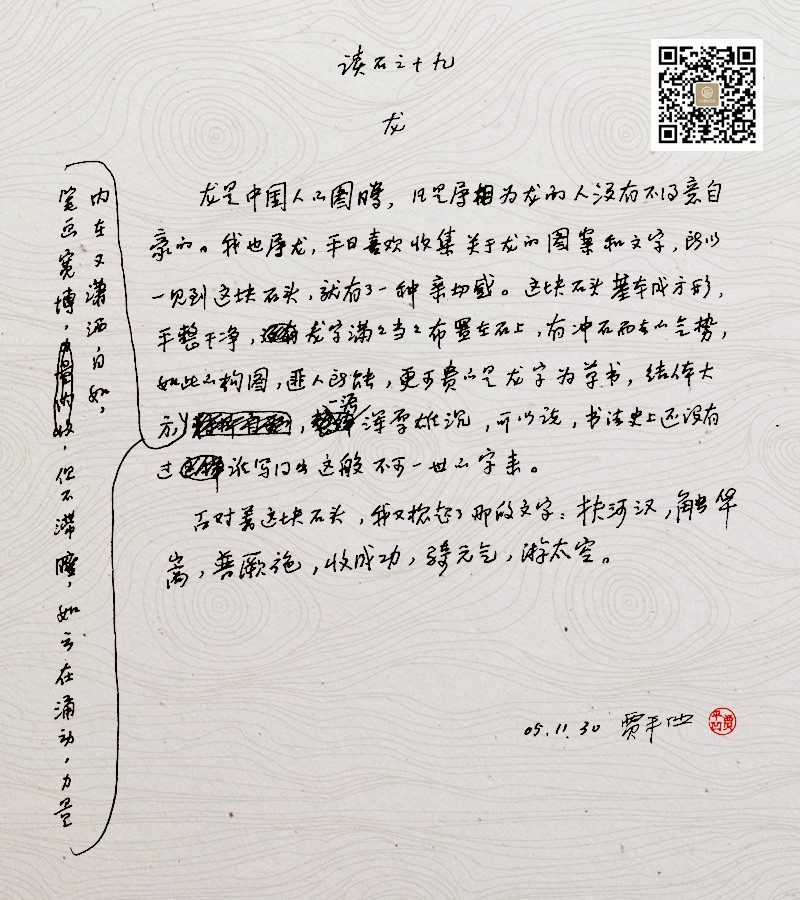 读石之十九
龙
龙是中国人的图腾，凡是属相为龙的人没有不得意自
豪的。我也属龙，平日喜欢收集关于龙的图案和文字，所以
一见到这块石头，就有了一种亲切感。这块石头基本成方形，
平整干净，龙字满满当当布置在石上，有冲石而去的气势，
如此的构图，匪人所能，更可贵的是龙字为草书，结体大
方，浑厚雄沉，可以说，书法史上还没有
过谁写得出这般不可一世的字来。
面对着这块石头，我又想起了那段文字：扶河汉，触华
嵩，普厥施，收成功，骑元气，游太空。
笔画宽博，但不滞腻，如云在涌动，力量
内在又潇洒自如，
05.11.30 贾平凹
贾平凹